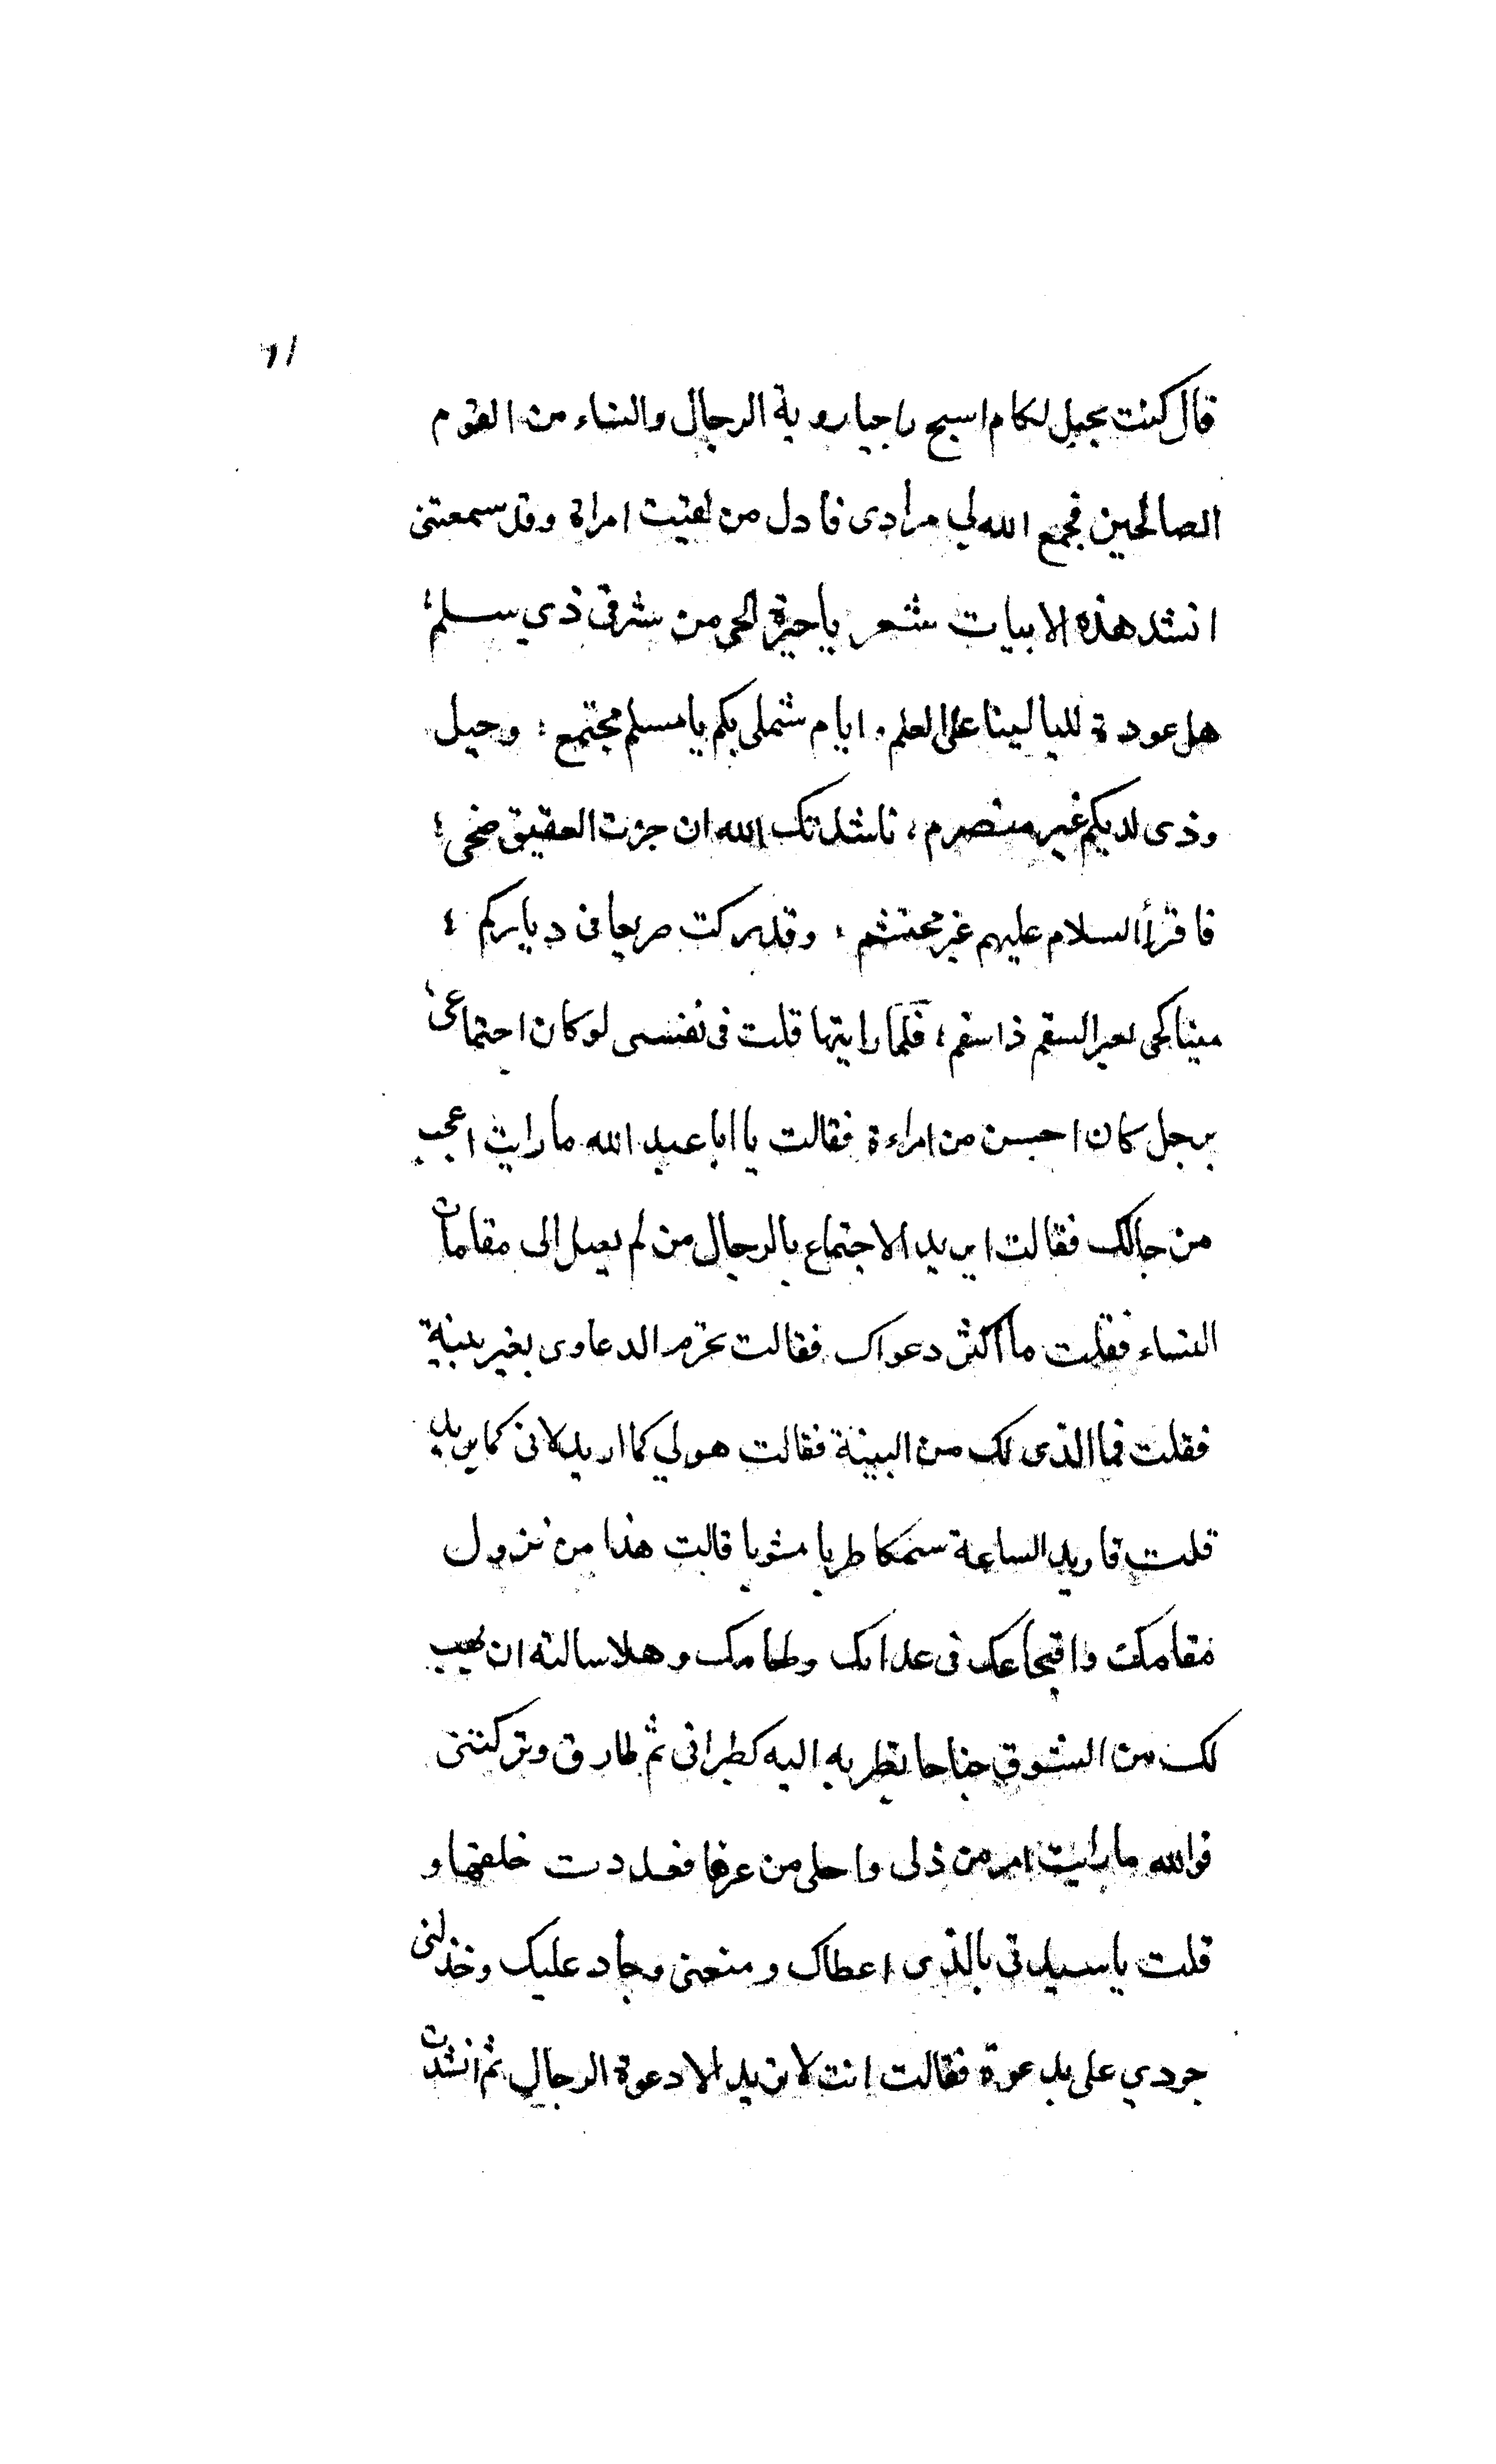 ٦١
قال كنت بجبل لكام اسيح راجيا روية الرجال والنساء من القوم
الصالحين فجمع الله لي مرادى فاول من لقيت امراة وقد سمعتنى
انشد هذه الابيات شعر ياجيرة الحى من شرقى ذي سلم ؛
هل عودة لليالينا على العلم . ايام شملى بكم يا مسلم مجتمع ؛ وحبل
ودى لديكم غير منصرم ؛ ناشدتك الله ان جزت العقيق ضحى ؛
فاقرأ السلام عليهم غير محتشم ؛ وقد تركت صريعا فى دياركم ؛
ميتا كحى يعير السقم ذا سقم ؛ فلما رايتها قلت فى نفسى لو كان اجتماعى
برجل كان احسن من امراءة فقالت يا ابا عبد الله ما رايت اعجب
من حالك فقالت ايريد الاجتماع بالرجال من لم يصل الى مقامات
النساء فقلت ما اكثر دعواك فقالت تحرم الدعاوى بغير بينة
فقلت فما الذى لك من البينة فقالت هو لي كما اريد لانى كما يريد
قلت فاريد الساعة سمكا طريا مشويا قالت هذا من نزول
مقامك وا فى غذائك وطعامك وهلا سالته ان يهب
لك من الشوق جناحا تطير به اليه كطيرانى ثم طارت وتركتنى
فوالله ما رايت امر من ذلى واحلى من عزها فعددت خلفها و
قلت ياسيدتى بالذى اعطاك ومنعنى وجاد عليك وخذلنى
جودي على بدعوة فقالت انت لا تريد الا دعوة الرجال ثم انشدت